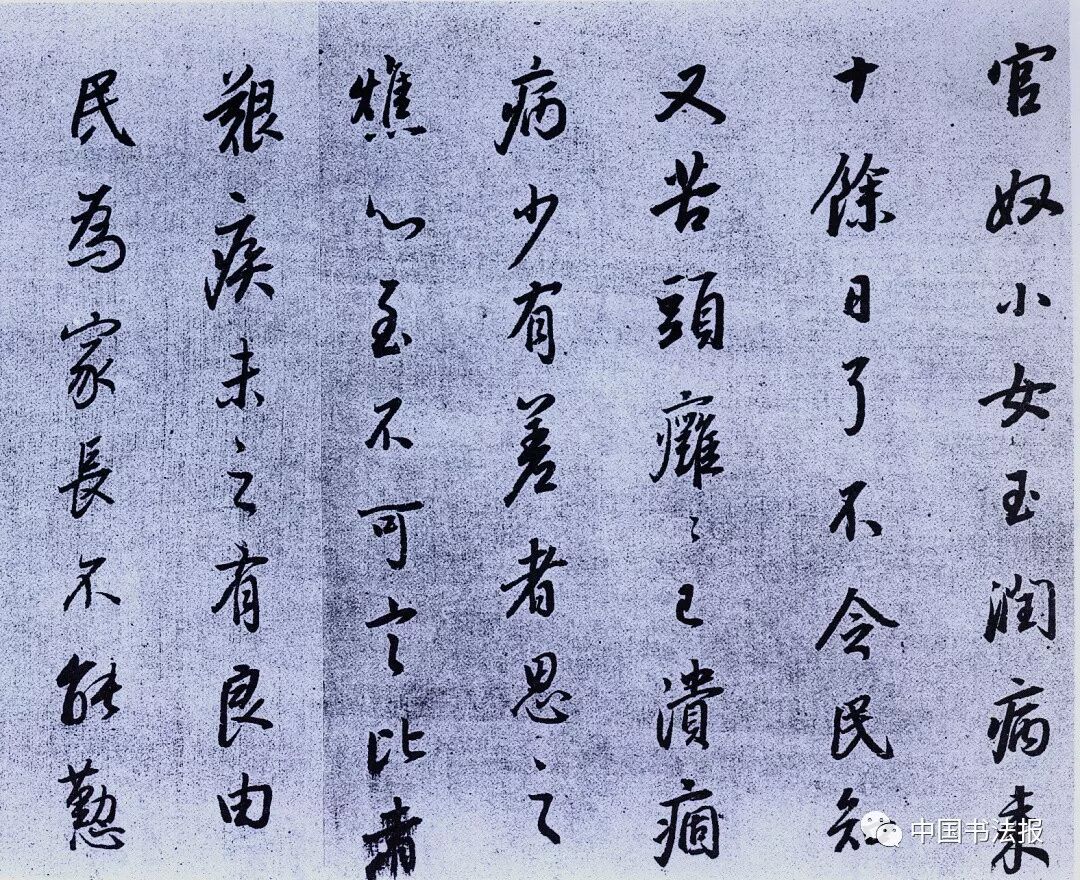 官奴小女玉潤病來
十餘日了不令民知
又苦頭癰〻已潰痼
病少有差者思之
憔心至不可言比者
艱疾未之有良由
民為家長不能懃
中国书法报